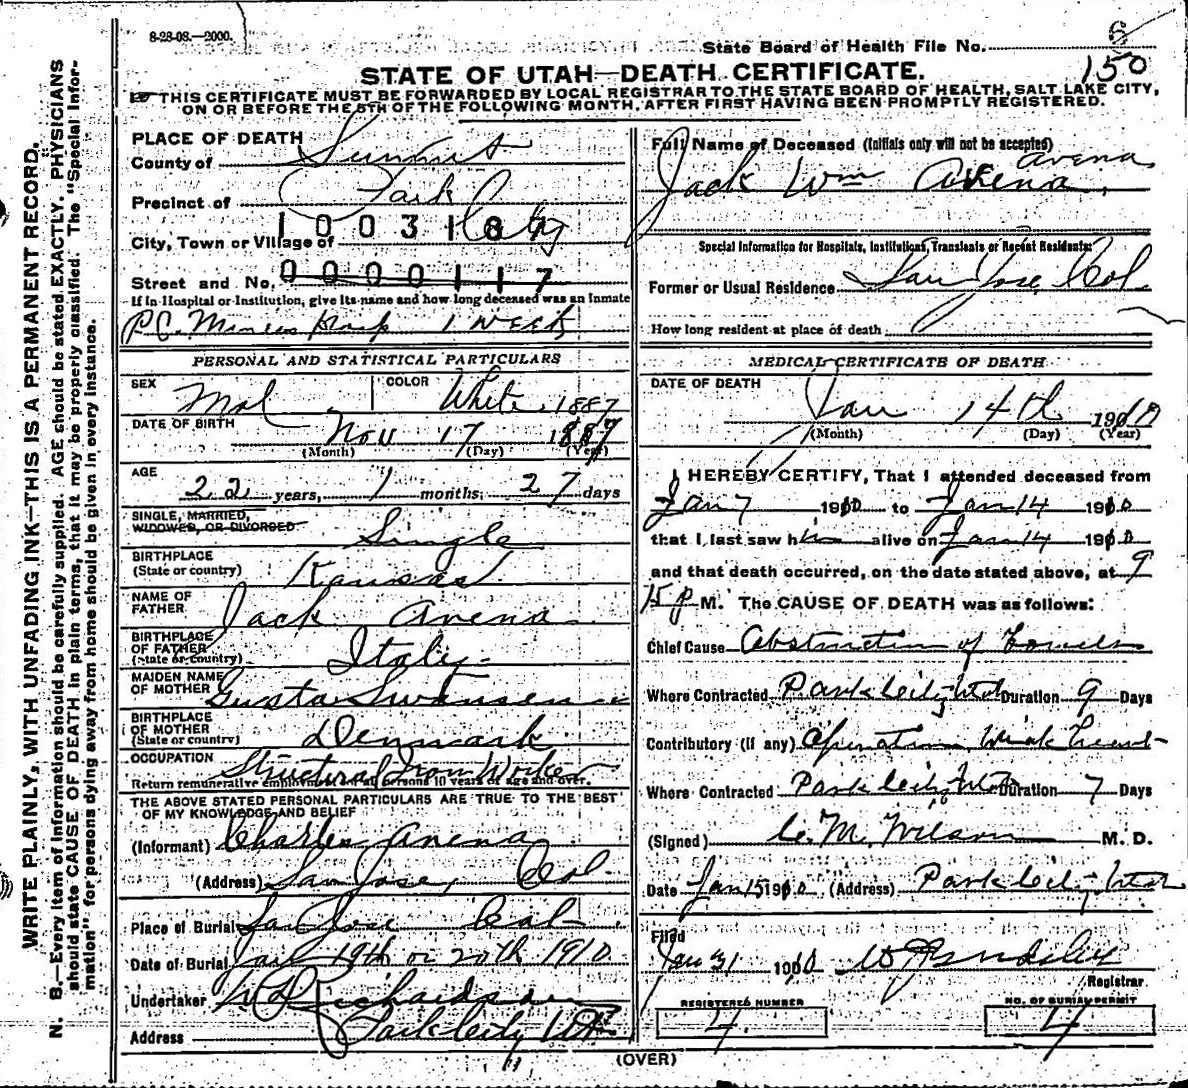 8-28-08.—2000.
State Board of Health File No. 6
150
STATE OF UTAH—DEATH CERTIFICATE.
THIS CERTIFICATE MUST BE FORWARDED BY LOCAL REGISTRAR TO THE STATE BOARD OF HEALTH, SALT LAKE CITY,
ON OR BEFORE THE 5TH OF THE FOLLOWING MONTH, AFTER FIRST HAVING BEEN PROMPTLY REGISTERED.
WRITE PLAINLY, WITH UNFADING INK—THIS IS A PERMANENT RECORD.
N. B.—Every item of information should be carefully supplied. AGE should be stated EXACTLY. PHYSICIANS
should state CAUSE OF DEATH in plain terms, that it may be properly classified. The "Special Infor-
mation" for persons dying away from home should be given in every instance.
PLACE OF DEATH
County of Summit
Precinct of Park City
1003187
City, Town or Village of
Street and No. 0000117
If in Hospital or Institution, give its name and how long deceased was an inmate
P.C. Miners Hosp 1 WEEK
PERSONAL AND STATISTICAL PARTICULARS
SEX Mal COLOR White
1887
DATE OF BIRTH Nov 17 1887
(Month) (Day) (Year)
AGE 22 years, 1 months, 27 days
SINGLE, MARRIED,
WIDOWED, OR DIVORCED Single
BIRTHPLACE
(State or country) Kansas
NAME OF
FATHER Jack Avena
BIRTHPLACE
OF FATHER
(State or country) Italy
MAIDEN NAME
OF MOTHER Gusta Swansen
BIRTHPLACE
OF MOTHER
(State or country) Denmark
OCCUPATION Structural Iron Worker
Return remunerative employment for all persons 10 years of age and over.
THE ABOVE STATED PERSONAL PARTICULARS ARE TRUE TO THE BEST
OF MY KNOWLEDGE AND BELIEF
(Informant) Charles Avena
(Address) San Jose, Cal.
Place of Burial San Jose Cal
Date of Burial Jan 19th or 20th 1910
Undertaker Richardson
Address Park City Ut
Full Name of Deceased (Initials only will not be accepted)
Avena
Jack Wm Avena
Special Information for Hospitals, Institutions, Transients or Recent Residents:
Former or Usual Residence San Jose Cal.
How long resident at place of death
MEDICAL CERTIFICATE OF DEATH
DATE OF DEATH
Jan 14th 1910
(Month) (Day) (Year)
I HEREBY CERTIFY, That I attended deceased from
Jan 7 1910 to Jan 14 1910
that I last saw him alive on Jan 14 1910
and that death occurred, on the date stated above, at 9
15 P M. The CAUSE OF DEATH was as follows:
Chief Cause Obstruction of Bowels
Where Contracted Park City Utah Duration 9 Days
Contributory (if any) Operation, Weak Heart
Where Contracted Park City Utah Duration 7 Days
(Signed) C. M. Wilson M. D.
Date Jan 15 1910 (Address) Park City Utah
Filed
Jan 31 1910
Registrar
REGISTERED NUMBER
4.
NO. OF BURIAL PERMIT
4
(OVER)